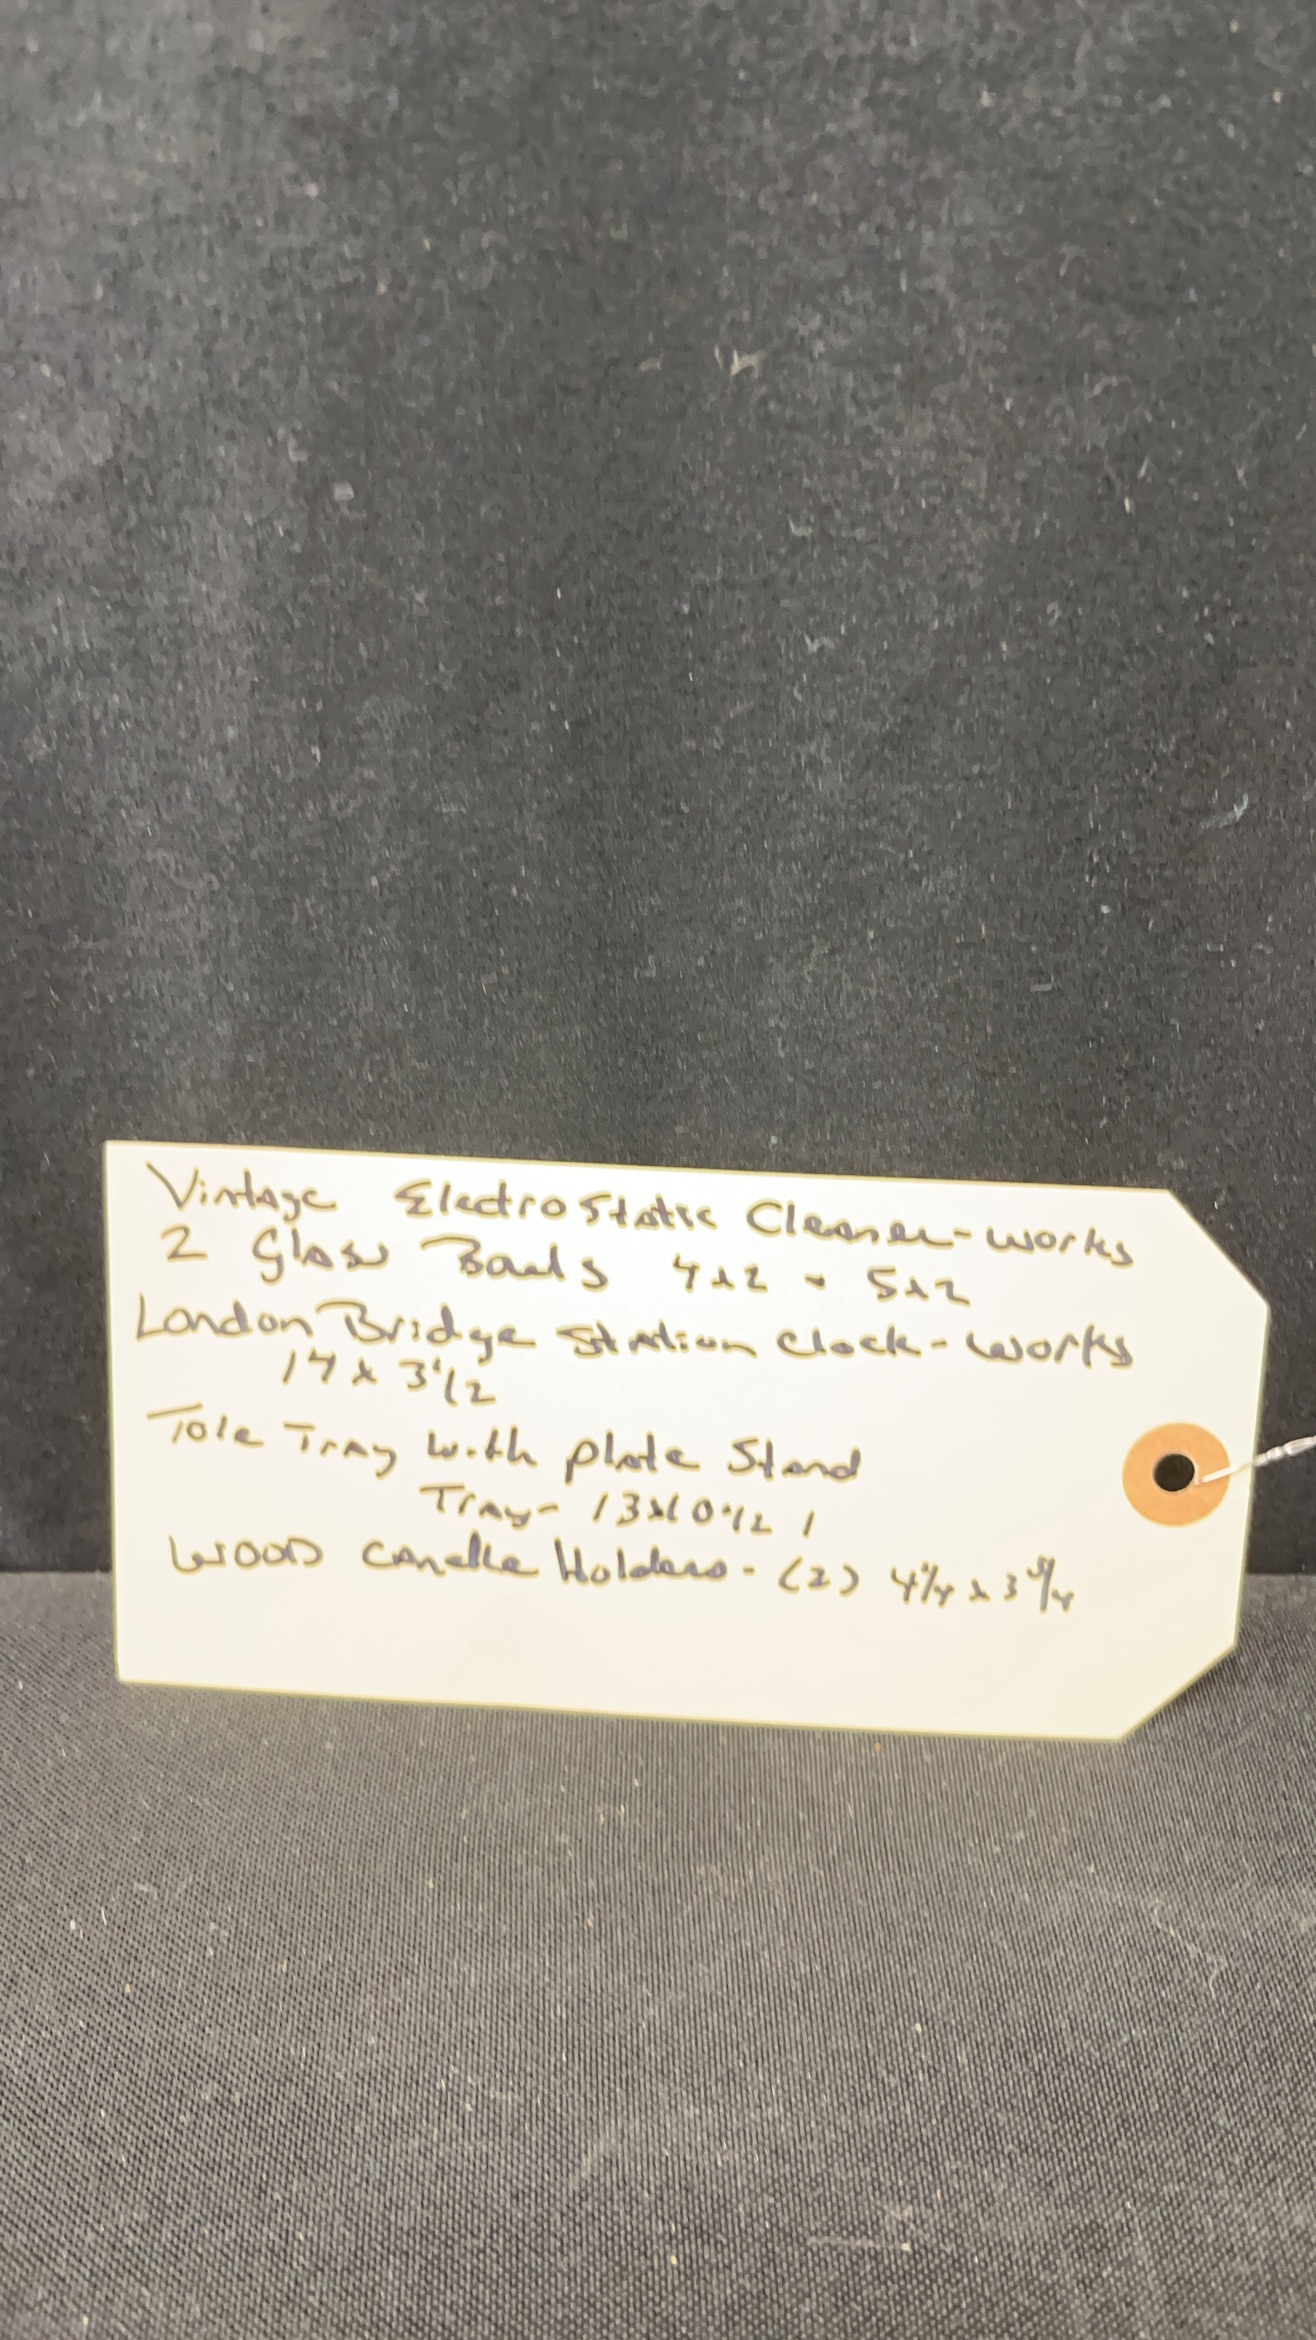 Vintage Electrostatic Cleaner-works
2 Glass Bowls 4x2 - 5x2
London Bridge Station Clock-works
14 x 3 1/2
Tole Tray with plate Stand
Tray- 13x10 1/2
WOOD Candle Holders - (2) 4 1/4 x 3